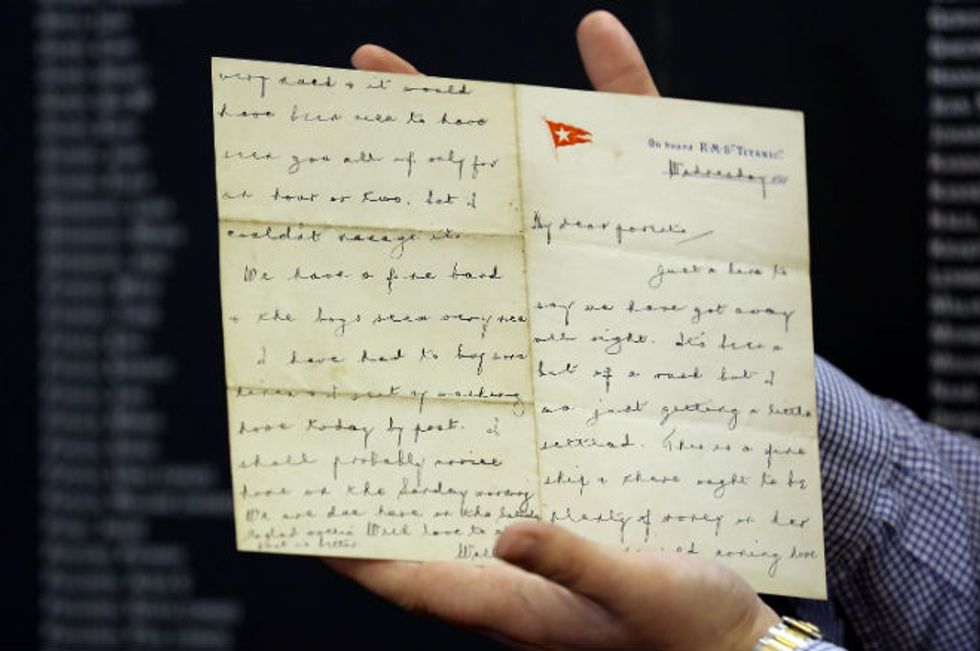 On board R.M.S "TITANIC".
Wednesday
My dear parents
Just a line to
say we have got away
all right. It's been a
bit of a rush but I
am just getting a little
settled. This is a fine
ship & there ought to be
plenty of money on her
coming home
very much & it would
have been nice to have
seen you all if only for
an hour or two. but I
couldn't manage it.
We have a fine band
& the boys seem very nice
I have had to buy some
linen & I sent my washing
home today by post. I
shall probably arrive
home on the Sunday morning
We are due here on the
With love to
foot is better